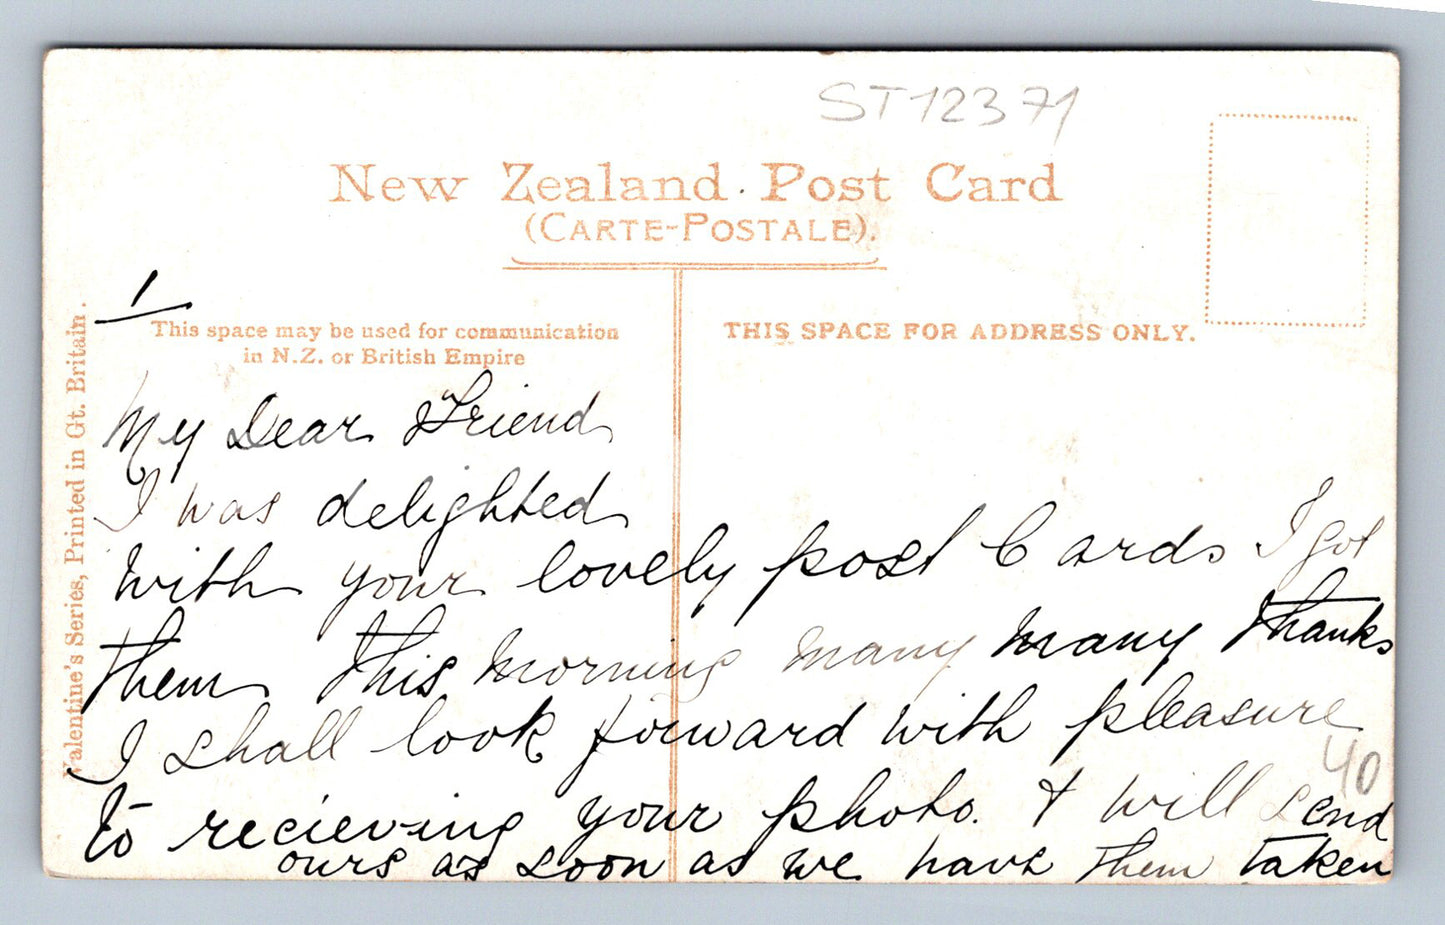 ST12371
New Zealand Post Card
(CARTE-POSTALE).
1
This space may be used for communication
in N.Z. or British Empire
THIS SPACE FOR ADDRESS ONLY.
Valentine's Series, Printed in Gt. Britain.
My Dear Friend
I was delighted
with your lovely post Cards I got
them this morning many many thanks
I shall look forward with pleasure
40
to recieveing your photo. & will send
ours as soon as we have them taken